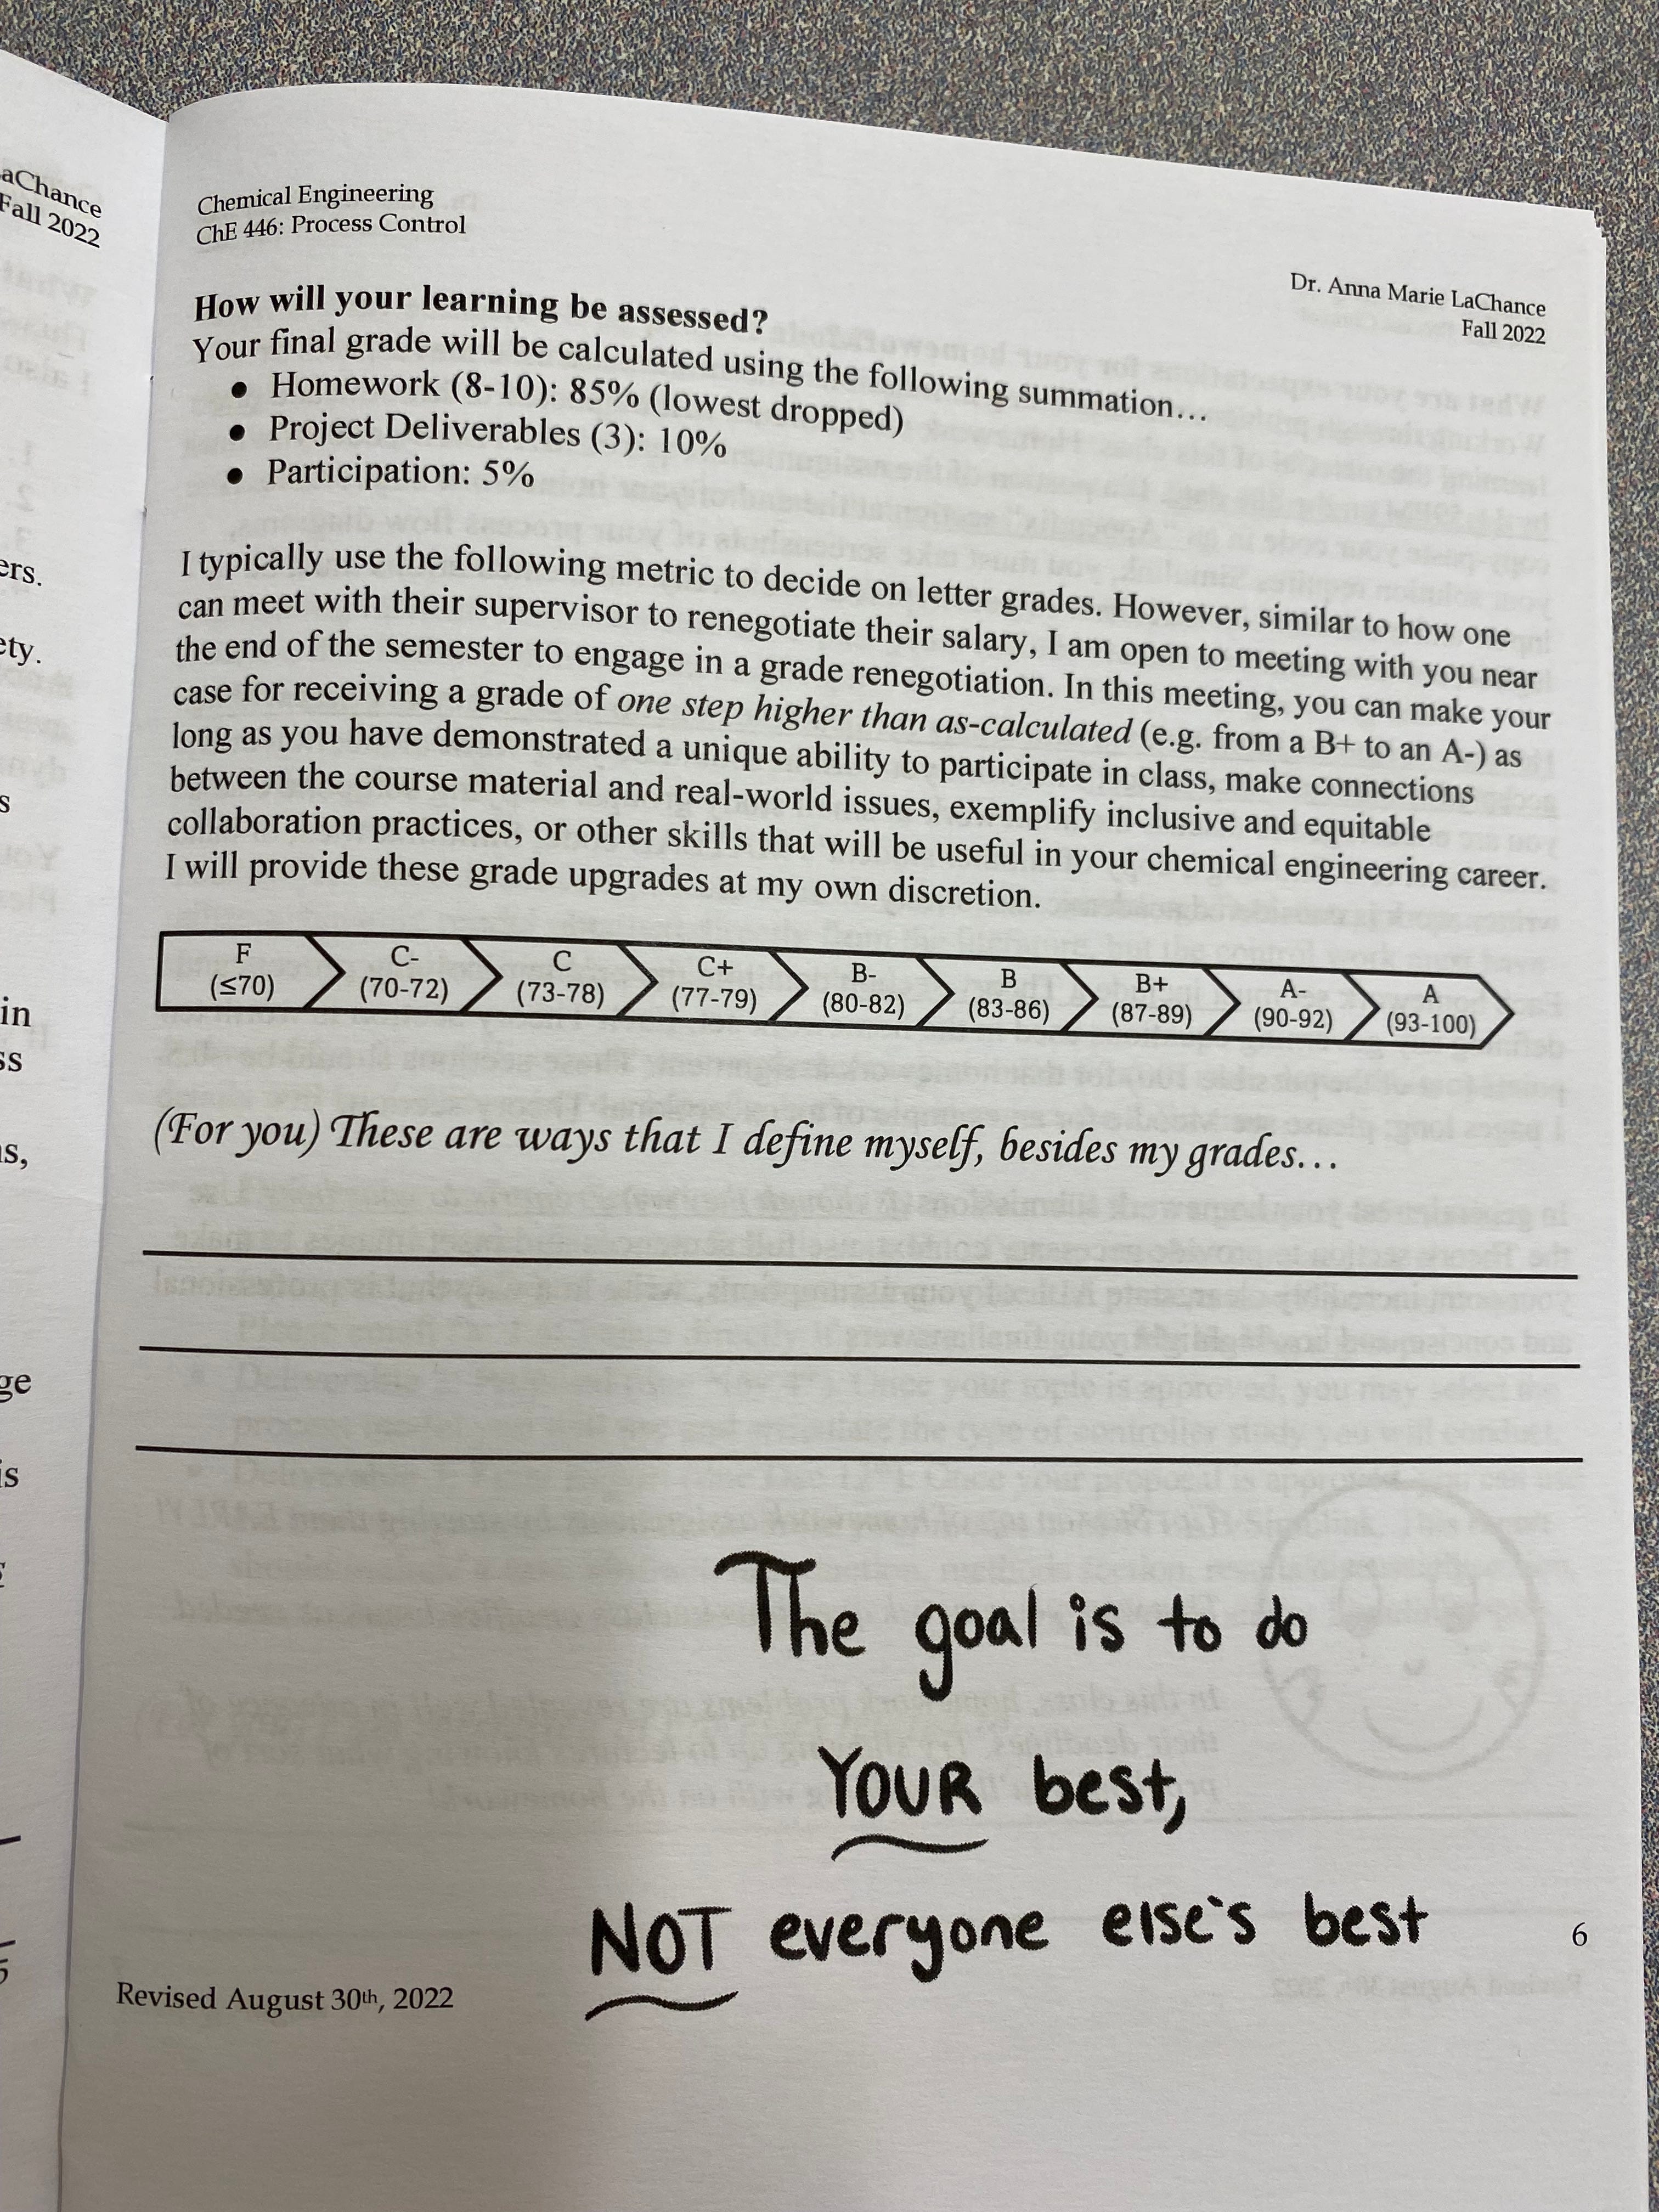 aChance
Fall 2022
ers.
ety.
s
in
ss
s,
ge
is
Chemical Engineering
ChE 446: Process Control
Dr. Anna Marie LaChance
Fall 2022
How will your learning be assessed?
Your final grade will be calculated using the following summation...
• Homework (8-10): 85% (lowest dropped)
• Project Deliverables (3): 10%
• Participation: 5%
I typically use the following metric to decide on letter grades. However, similar to how one
can meet with their supervisor to renegotiate their salary, I am open to meeting with you near
the end of the semester to engage in a grade renegotiation. In this meeting, you can make your
case for receiving a grade of one step higher than as-calculated (e.g. from a B+ to an A-) as
long as you have demonstrated a unique ability to participate in class, make connections
between the course material and real-world issues, exemplify inclusive and equitable
collaboration practices, or other skills that will be useful in your chemical engineering career.
I will provide these grade upgrades at my own discretion.
F C- C C+ B- B B+ A- A
(≤70) (70-72) (73-78) (77-79) (80-82) (83-86) (87-89) (90-92) (93-100)
(For you) These are ways that I define myself, besides my grades...
The goal is to do
YOUR best,
NOT everyone else's best
6
Revised August 30th, 2022